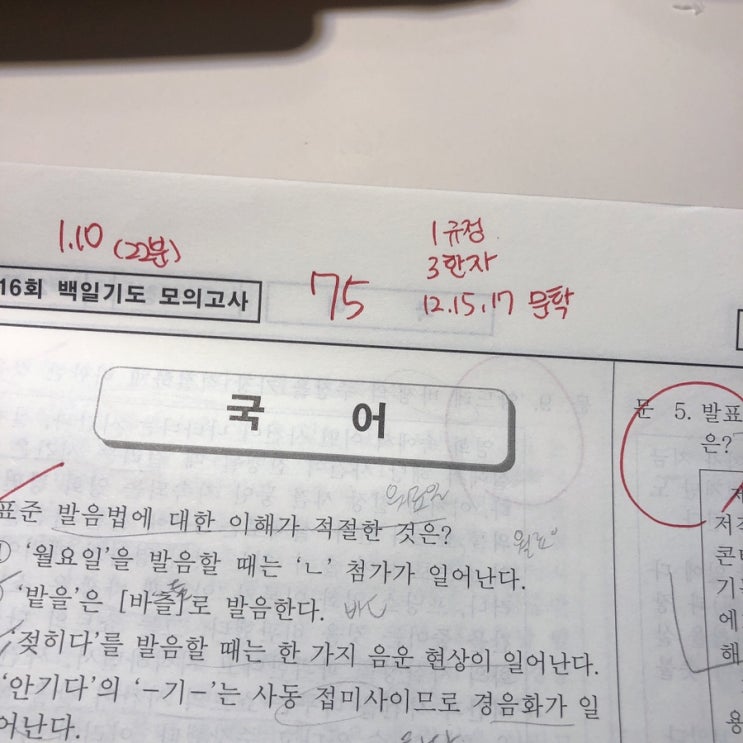 1.10 (22분)
1 규정
3 한자
12.15.17 문학
75
16회 백일기도 모의고사
국 어
표준 발음법에 대한 이해가 적절한 것은?
① '월요일'을 발음할 때는 'ㄴ' 첨가가 일어난다.
'밭을'은 [바츨]로 발음한다.
'젖히다'를 발음할 때는 한 가지 음운 현상이 일어난다.
'안기다'의 '-기-'는 사동 접미사이므로 경음화가 일
어난다.
문 5. 발표
은?
저작
콘
기
에
해
용